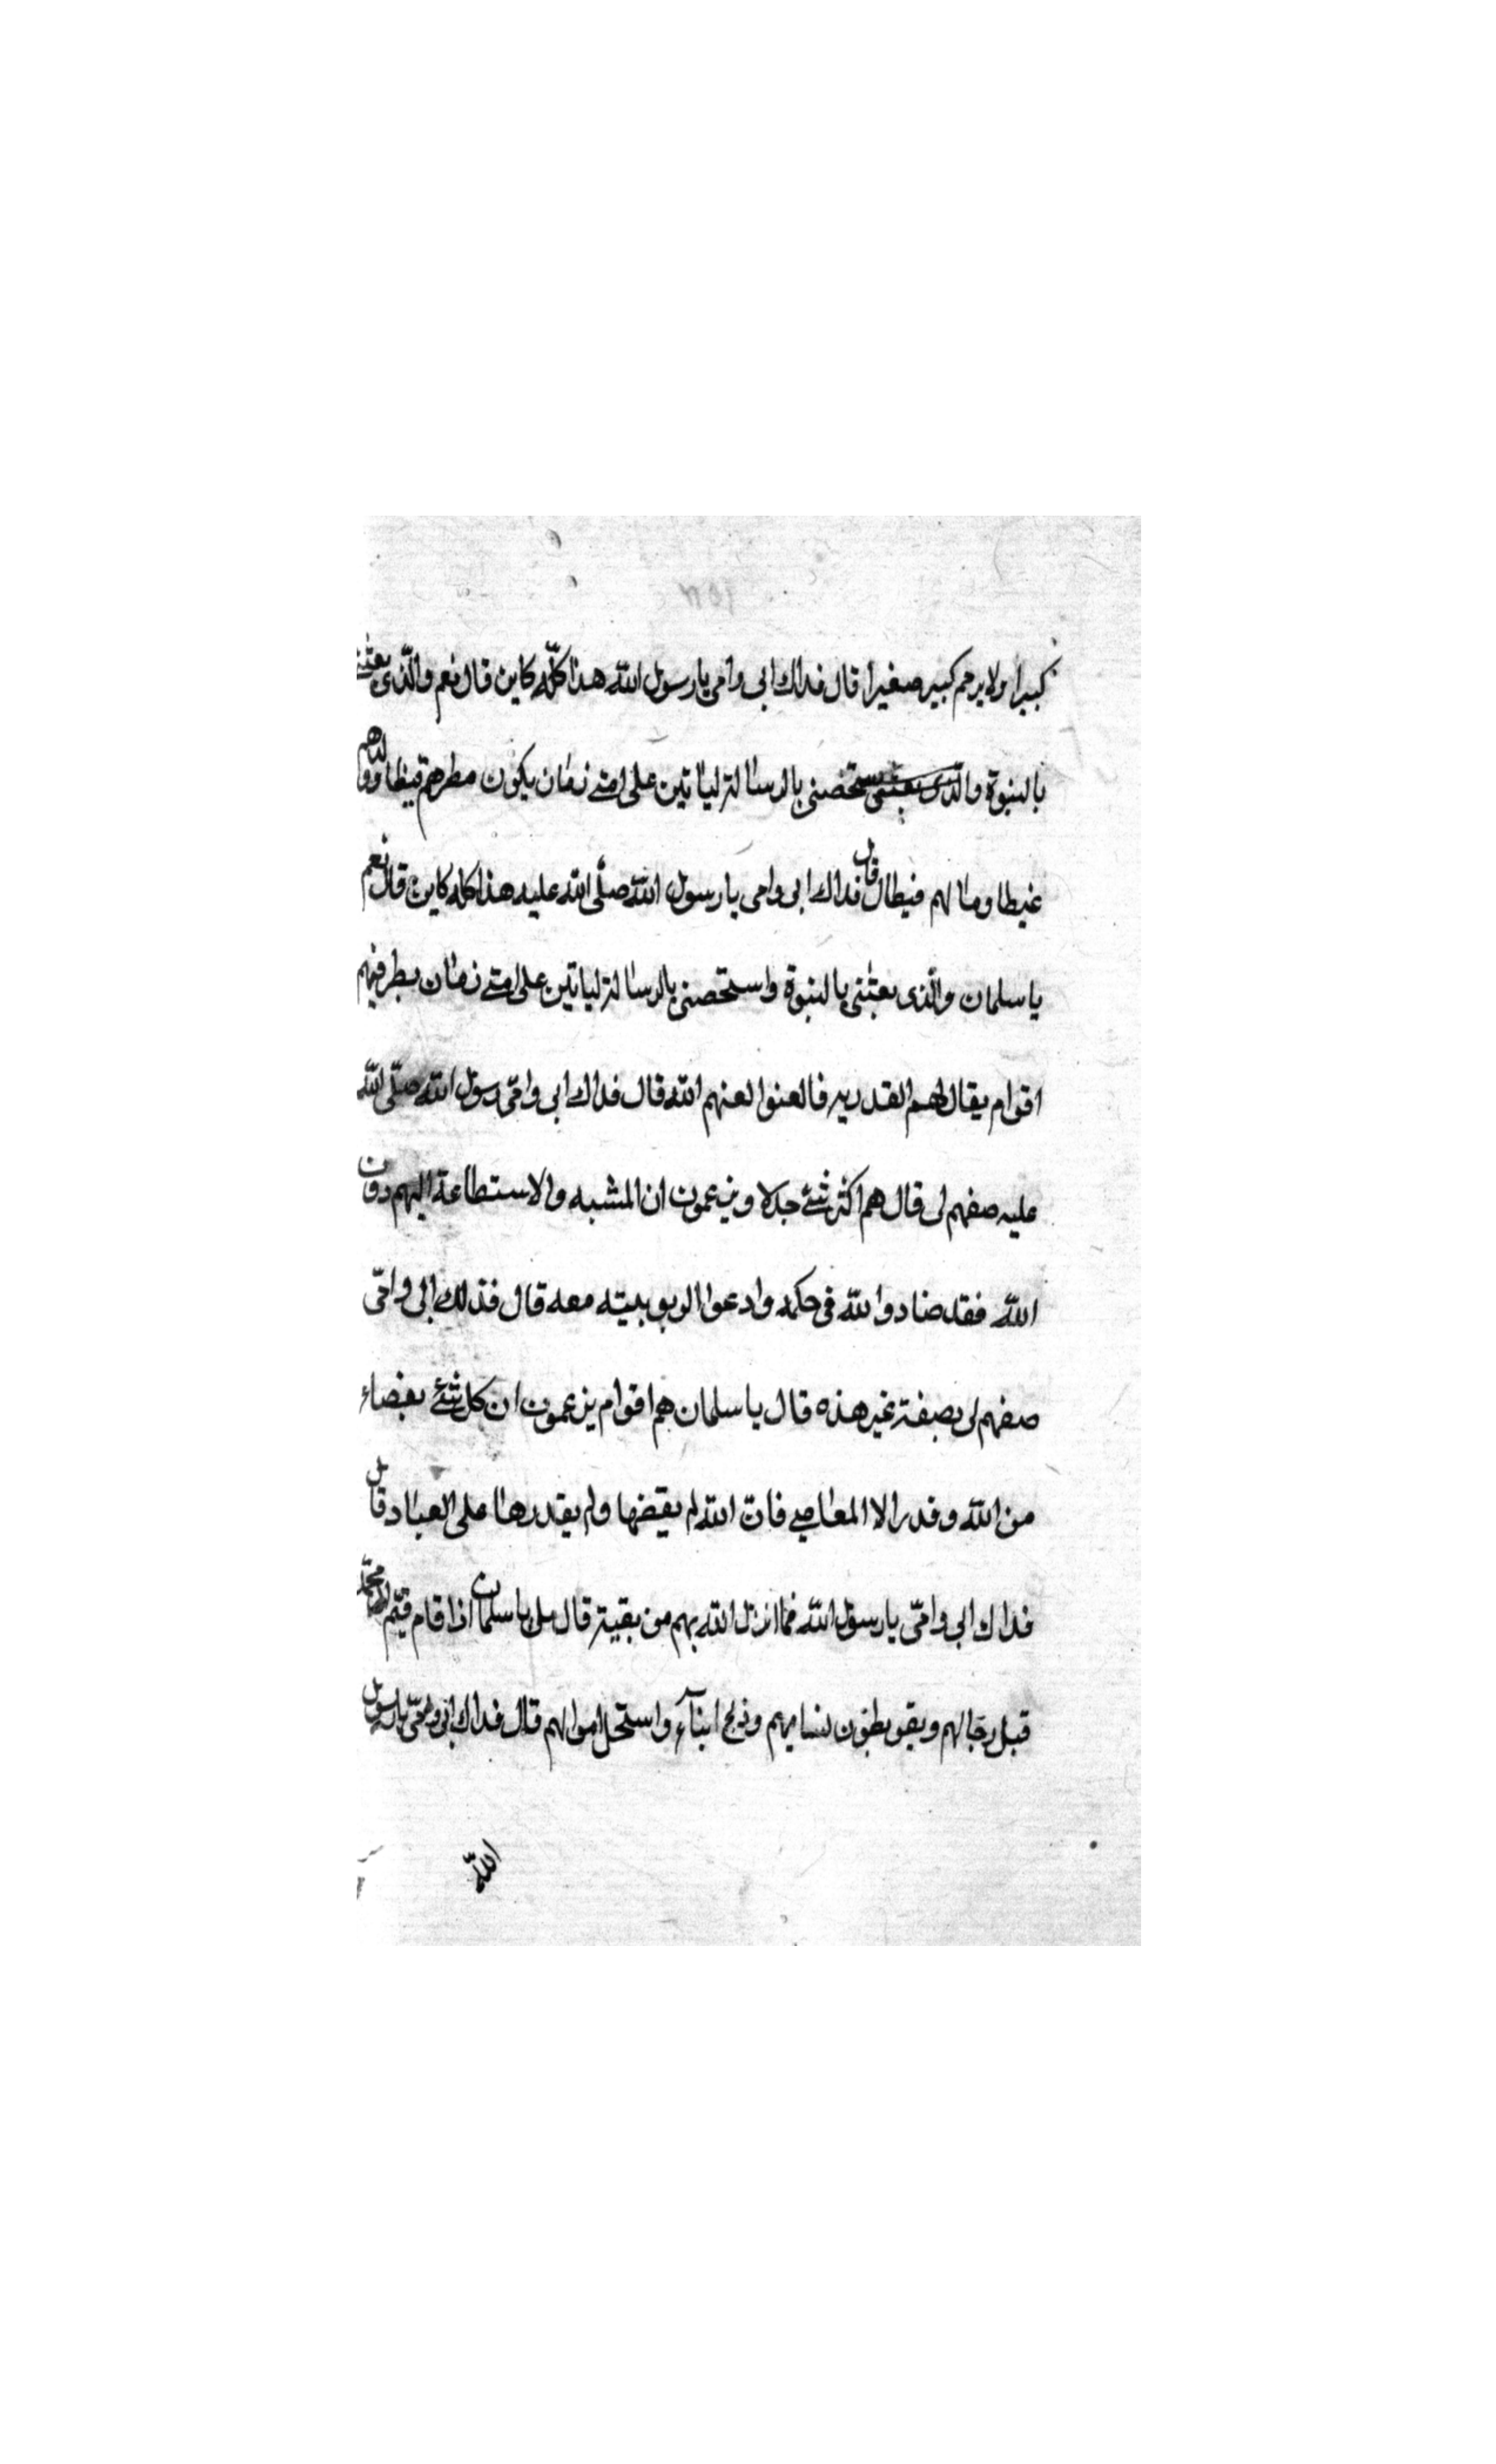 كبيرا ولا يرحم كبير صغيرا قال فداك ابى وامى يا رسول الله هذا كلّه كاين قال نعم والّذى بعثنى
بالنبوة والّذى بعثنى ستخصنى بالرسالة لياتين على امتے زمان يكون مطرهم قيظا وولدهم
غيظا ومالهم فيطال قال فداك ابى وامى يا رسول الله صلّى الله عليه هذا كله كاين قال نعم
يا سلمان والّذى بعثنى بالنبوة واستخصنى بالرسالة لياتين على امتے زمان يطر فيهم
اقوام يقال لهم القدريه فالعنوا لعنهم الله قال فداك ابى وامّى رسول الله صلّى الله
عليه صفهم لى قال هم اكثر شئ جدلا ويزعمون ان المشبه والاستطاعة اليهم دون
الله فقد ضادوا لله فى حكمه وادعوا الربوبيته معه قال فذلك ابى وامّى
صفهم لى بصفة غير هذه قال يا سلمان هم اقوام يزعمون ان كل شئ بغضاء
من الله وقدر الا المعاصے فان الله لم يقضها ولم يقدرها على العباد قال
فداك ابى وامّى يا رسول الله فما انزل الله بهم من بقية قال بلى يا سلمان اذا قام قيّم ال محمّد
قبل رجالهم وبقو بطون نسايهم وذبح ابناء واستحل اموالهم قال فداك ابى وامّى يا رسول
الله